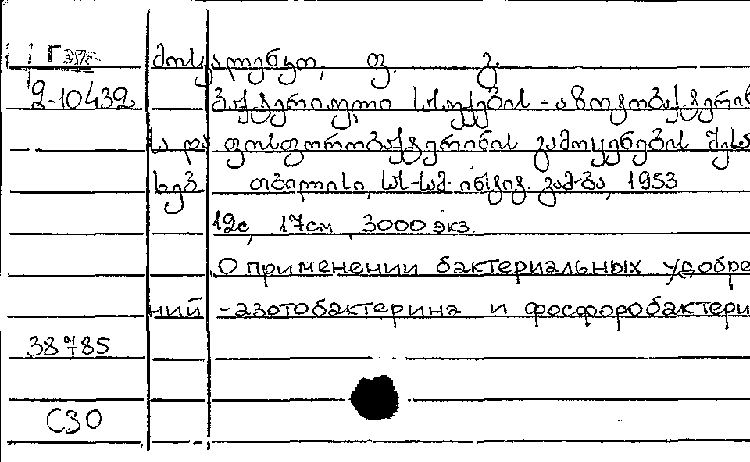 Г
მოსკალენკო, ფ. გ.
2-10432 ბაქტერიული სასუქების - აზოტობაქტერინ
ისა და ფოსფორობაქტერინის გამოყენების შესა
ხებ თბილისი, სას-სამ. ინსტიტ. გამ-ბა, 1953
12с, 17см, 3000 экз.
О применении бактериальных удобре
ний - азотобактерина и фосфоробактери
38785
СЗО